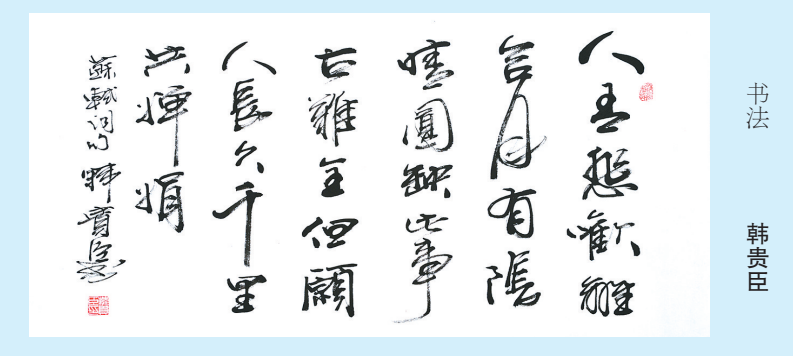 人有悲歡離
合月有陰
晴圓缺此事
古難全但願
人長久千里
共嬋娟
蘇軾词句 韩貴臣书
书法
韩贵臣